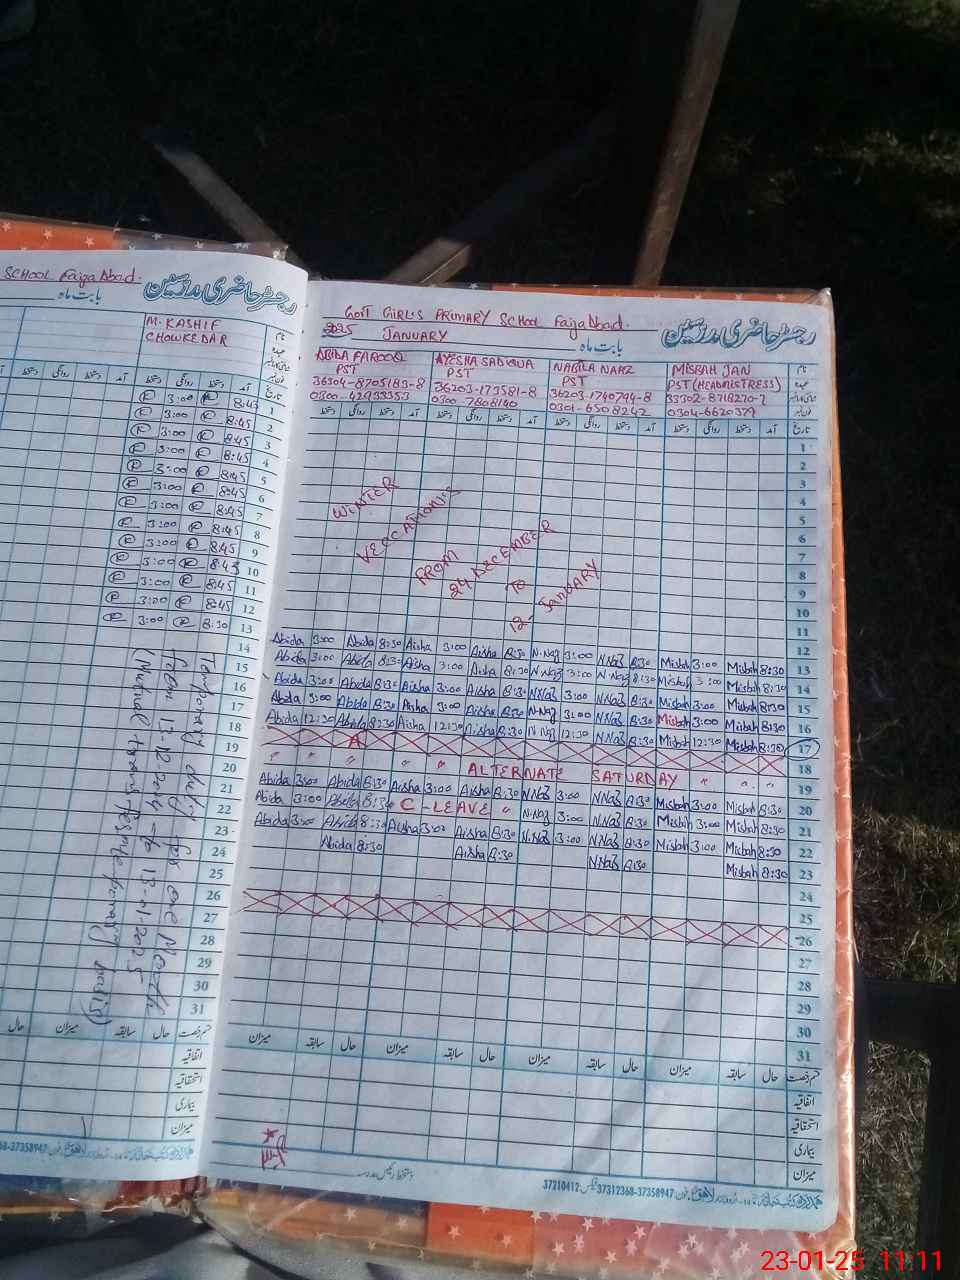 SCHOOL Faiza Abad.
رجسٹر حاضری مدرسین
بابت ماہ
M. KASHIF
CHOWKEDAR
آمد دستخط روانگی دستخط تاریخ
8:45 3:00 1
8:45 3:00 2
8:45 3:00 3
8:45 3:00 4
8:45 3:00 5
8:45 3:00 6
8:45 3:00 7
8:45 3:00 8
8:45 3:00 9
8:45 3:00 10
8:45 3:00 11
8:45 3:00 12
8:30 3:00 13
14
15
16
17
18
19
20
21
22
23
24
25
26
27
28
29
30
31
Temporary duty for one Month
from 13.12.2024 to 13.01.2025
(Mutual transfer temporary basis)
حال سابقہ میزان حال
اتفاقیہ
استحقاقیہ
بیماری
میزان
GOVT GIRLS PRIMARY SCHOOL Faiza Abad.
رجسٹر حاضری مدرسین
2025 JANUARY بابت ماہ
ABIDA FAROOQ
PST
36304-8705183-8
0300-42933353
AYESHA SADIQUA
PST
36203-173581-8
0300-7808140
NABILA NAAZ
PST
36203-1740794-8
0301-6508242
MISBAH JAN
PST (HEADMISTRESS)
33302-8718270-2
0304-6620379
آمد دستخط روانگی دستخط تاریخ
1
2
3
4
5
6
7
8
9
10
11
WINTER
VERCATION,S
FROM
24 DECEMBER
TO
12-JANUARY
Abida 3:00 Abida 8:30 Aisha 3:00 Aisha 8:30 N.Naz 3:00 N.Naz 8:30 Misbah 3:00 Misbah 8:30 12
Abida 3:00 Abida 8:30 Aisha 3:00 Aisha 8:30 N.Naz 3:00 N.Naz 8:30 Misbah 3:00 Misbah 8:30 13
Abida 3:00 Abida 8:30 Aisha 3:00 Aisha 8:30 N.Naz 3:00 N.Naz 8:30 Misbah 3:00 Misbah 8:30 14
Abida 3:00 Abida 8:30 Aisha 3:00 Aisha 8:30 N.Naz 3:00 N.Naz 8:30 Misbah 3:00 Misbah 8:30 15
Abida 12:30 Abida 8:30 Aisha 12:30 Aisha 8:30 N.Naz 12:30 N.Naz 8:30 Misbah 12:30 Misbah 8:30 16
A 17
" " " " " ALTERNATE SATURDAY " " " 18
Abida 3:00 Abida 8:30 Aisha 3:00 Aisha 8:30 N.Naz 3:00 N.Naz 8:30 Misbah 3:00 Misbah 8:30 19
Abida 3:00 Abida 8:30 C-LEAVE " N.Naz 3:00 N.Naz 8:30 Misbah 3:00 Misbah 8:30 20
Abida 3:00 Abida 8:30 Aisha 3:00 Aisha 8:30 N.Naz 3:00 N.Naz 8:30 Misbah 3:00 Misbah 8:30 21
Abida 8:30 Aisha 8:30 N.Naz 8:30 Misbah 8:30 22
23
24
25
26
27
28
29
30
31
حال سابقہ میزان حال سابقہ میزان حال سابقہ میزان
اتفاقیہ
استحقاقیہ
بیماری
میزان
دستخط رئیس مدرسہ
37312368-37358947 37210412
23-01-25 11:11